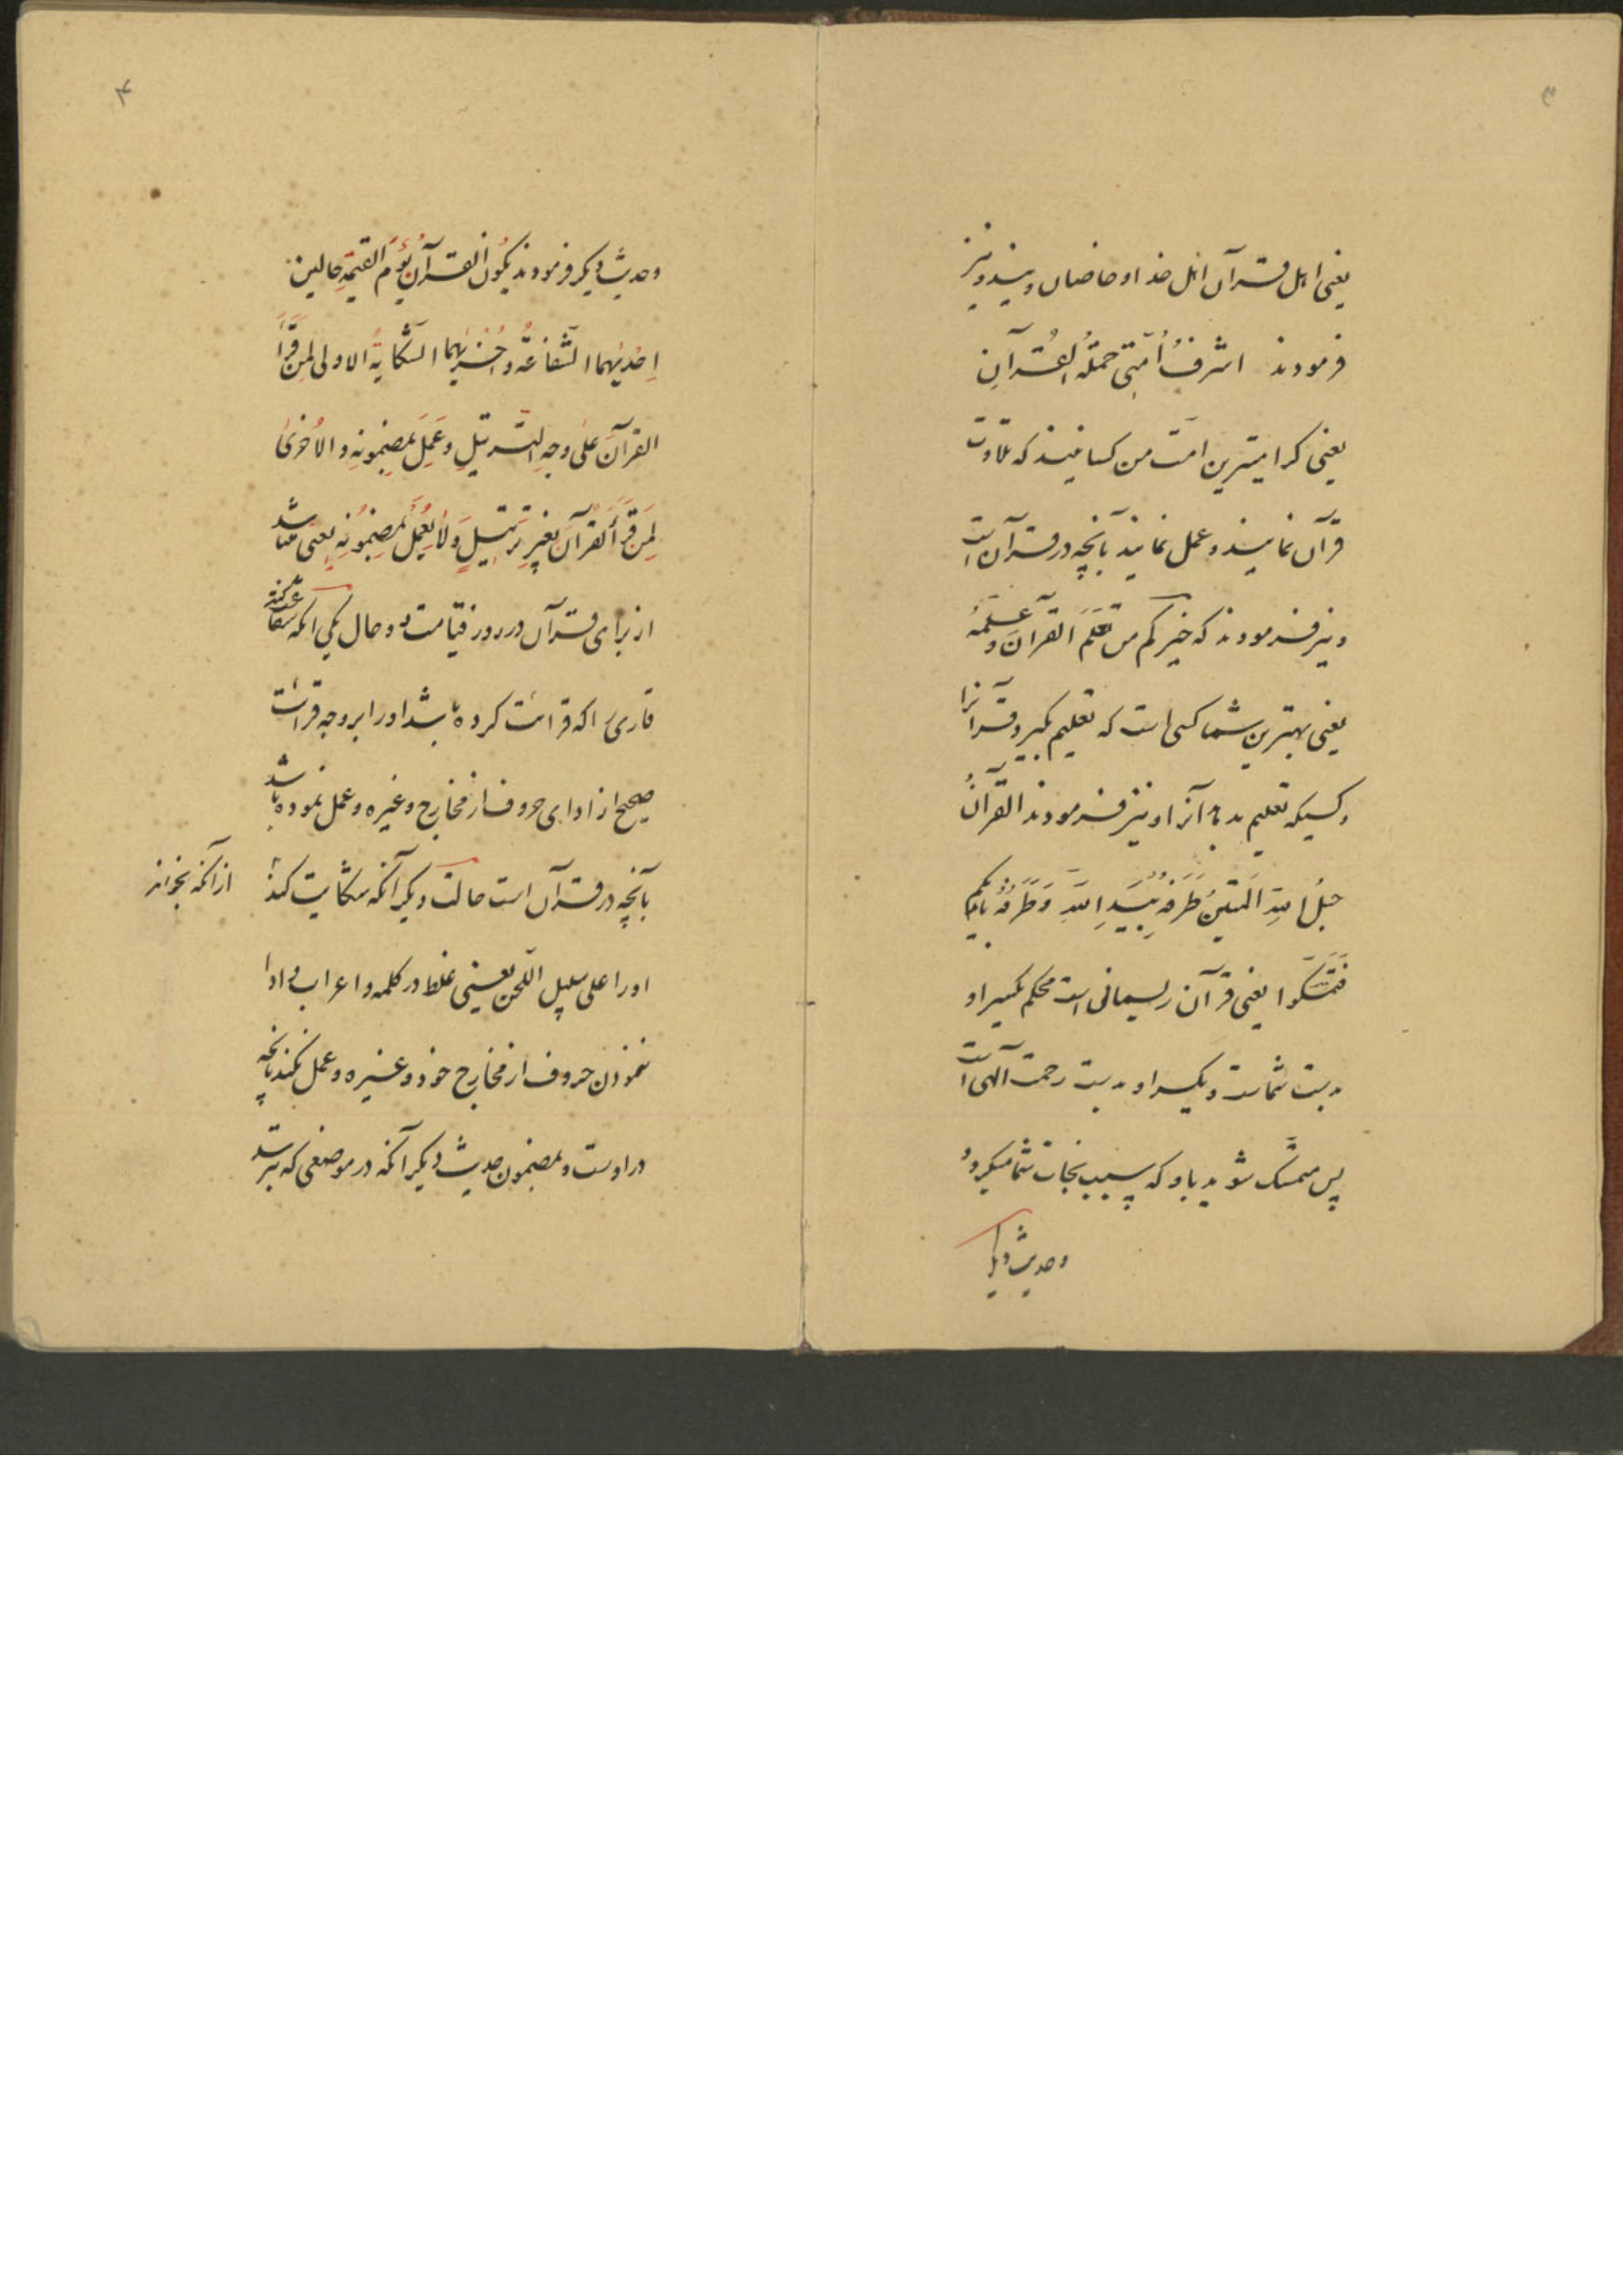 ۳
یعنی اهل قرآن اهل خدا و خاصان ویند و نیز
فرمودند اشرفُ اُمّتی حملَةُ القُرآنِ
یعنی گرامیترین امّت من کسانیند که تلاوت
قرآن نمایند و عمل نمایند بآنچه در قرآن است
و نیز فرمودند که خیرکم من تَعَلَّمَ القرآنَ و عَلَّمَهُ
یعنی بهترین شما کسی است که تعلیم بگیرد قرآنرا
و کسیکه تعلیم بدهد آنرا و نیز فرمودند القرآنُ
حبلُ اللهِ المَتینُ طَرَفُهُ بِیَدِ اللهِ وَ طَرَفُهُ بایدیکم
فَتَمَسَّکوا یعنی قرآن ریسمانی است محکم یکسر او
بدست شماست و یکسر او بدست رحمت آلهی است
پس متمسّک شوید باو که سبب نجات شما میگردد
و حدیث دیگر
۴
و حدیث دیگر فرمودند یکُونُ القرآنُ یَوْمَ القیمَةِ حالین
اِحْدیٰهما الشّفاعَةُ و اُخْریٰهما الشّکایَةُ الاولی لِمَنْ قَرَأَ
القرآنَ عَلیٰ وجهِ التّرتیلِ وَ عَمِلَ بمَضمُونِهِ و الاُخریٰ
لِمَن قَرَأَ القُرآنَ بغَیرِ تَرتیلٍ وَ لا یَعْمَلُ بمَضمُونِهِ یعنی میباشد
از برای قرآن در روز قیامت دو حال یکی آنکه شفاعت کند
قاری را که قرائت کرده باشد او را بر وجه قرائت
صحیح از ادای حروف از مخارج و غیره و عمل نموده باشد
بآنچه در قرآن است حالت دیگر آنکه شکایت کند
از آنکه بخواند
او را علی سبیل اللّحن یعنی غلط در کلمه و اعراب و ادا
ننمودن حروف از مخارج خود و غیره و عمل نکند بآنچه
در اوست و بمضمون حدیث دیگر آنکه در موضعی که بترسد